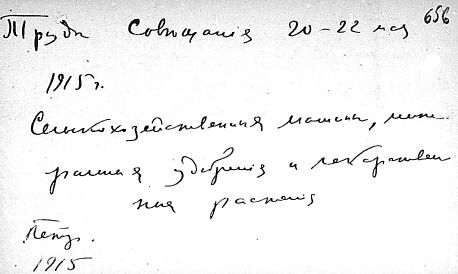 Труды Совещания 20-22 мая 656
1915 г.
Сельскохозяйственныя машины, мине-
ральныя удобрения и лекарствен
ныя растения
Петр.
1915